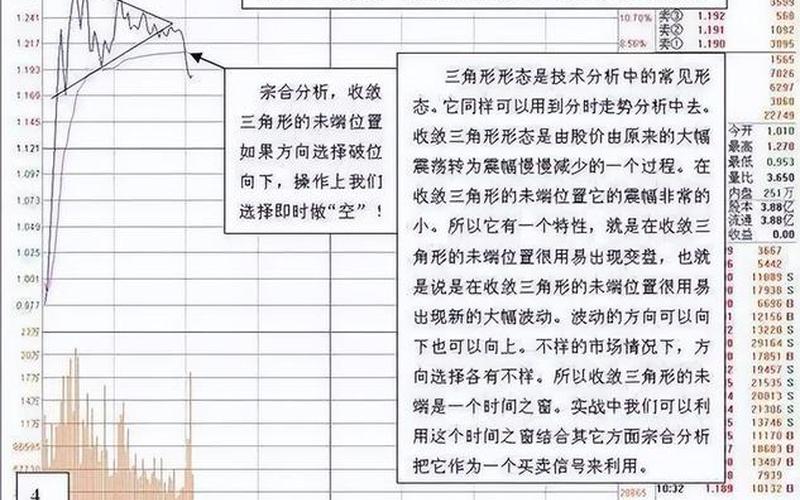 1.241
1.217
1.193
1.169
1.145
1.121
1.097
1.073
1.049
1.025
1.001
0.977
22万
20万
17万
14万
11万
88595
4
宗合分析，收敛
三角形的未端位置
如果方向选择破位
向下，操作上我们
选择即时做“空”！
三角形形态是技术分析中的常见形
态。它同样可以用到分时走势分析中去。
收敛三角形形态是由股价由原来的大幅
震荡转为震幅慢慢减少的一个过程。在
收敛三角形的未端位置它的震幅非常的
小。所以它有一个特性，就是在收敛三
角形的未端位置很用易出现变盘，也就
是说是在收敛三角形的未端位置很用易
出现新的大幅波动。波动的方向可以向
下也可以向上。不样的市场情况下，方
向选择各有不样。所以收敛三角形的未
端是一个时间之窗。实战中我们可以利
用这个时间之窗结合其它方面宗合分析
把它作为一个买卖信号来利用。
10.70% 卖③ 1.192 560
卖② 1.191 1092
8.56% 卖① 1.190 3095
1565
7026
6297
3060
22749
今开 1.010
最高 1.270
最低 0.953
量比 3.650
内盘 251万
股本 3.88亿
流通 3.88亿
收益 0.00
3667
5442
11089 S
17938 S
6696 B
12156 B
13220 S
29164 S
17851 B
19457 S
21535 S
20013 S
21306 S
13746 S
11170 B
18687 B
13497 B
7939
20865 10:32 1.189 10132 B